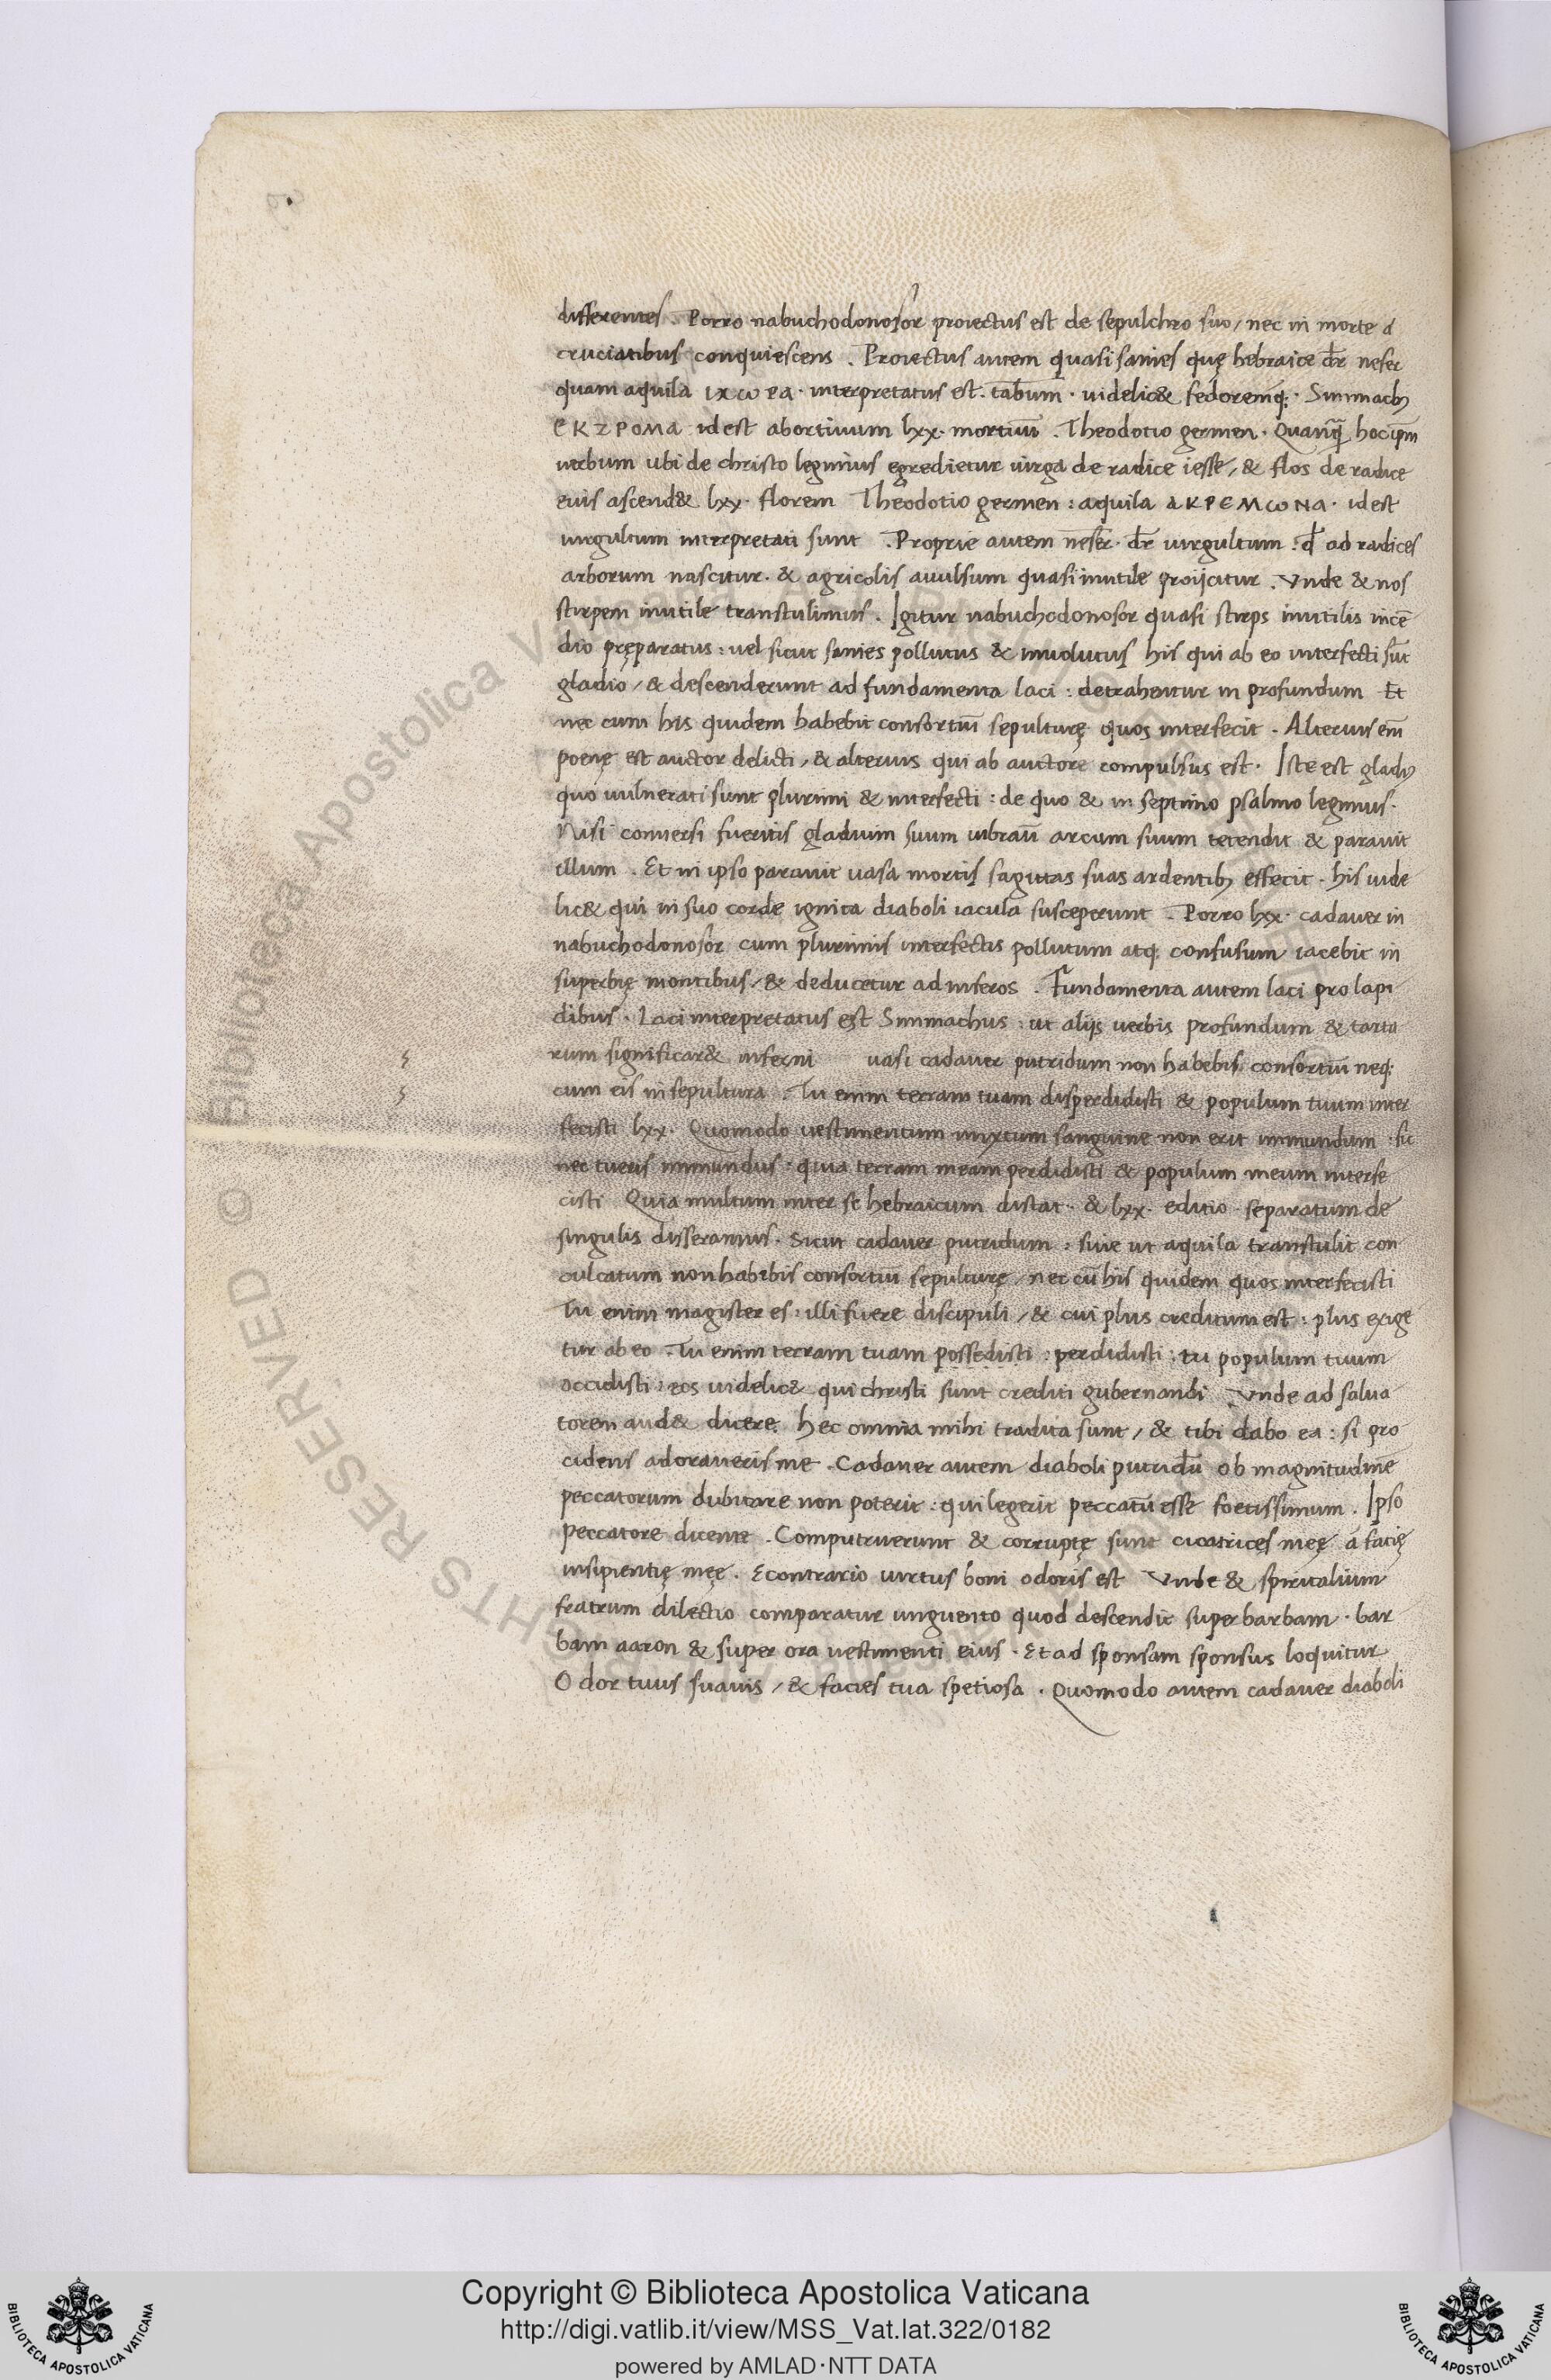 differentes. Porro nabuchodonosor proiectus est de sepulchro suo / nec in morte a
cruciatibus conquiescens. Proiectus autem quasi sanies quę hebraice dr̄ neser
quam aquila ιχωρα · interpretatus est · tabum̄ · uidelic& fedoremq; · Simmachꝰ
ΕΚΖΡΟΜΑ idest abortiuum lxx · mortuū. Theodotio germen · Quanq̄ hoc ip̄m
uerbum ubi de christo legimus egredietur uirga de radice iesse / & flos de radice
eius ascend& lxx · florem Theodotio germen : aquila ΑΚΡΕΜωΝΑ · idest
uirgultum interpretati sunt. Proprie autem neser̄ · dr̄ uirgultum : qđ ad radices
arborum nascitur · & agricolis auulsum quasi inutile proijcitur. Vnde & nos
stirpem inutile transtulimus. Igitur nabuchodonosor quasi stirps inutilis incē
dio pręparatus : uel sicut sanies pollutus & inuolutus his qui ab eo interfecti sūt
gladio / & descenderunt ad fundamenta laci : detrahentur in profundum Et
nec cum his quidem habebit consortiū sepulturę quos interfecit. Alterius em̄
poenę est auctor delicti / & alterius qui ab auctore compulsus est. Iste est gladꝰ
quo uulnerati sunt plurimi & interfecti : de quo & in septimo psalmo legimus.
Nisi conuersi fueritis gladium suum uibrau̅ arcum suum tetendit & parauit
illum. Et in ipso parauit uasa mortis sagittas suas ardentibꝰ effecit. his uide
lic& qui in suo corde ignita diaboli iacula susceperunt. Porro lxx · cadauer in
nabuchodonosor cum plurimis interfectis pollutum atq; confusum iacebit in
superbię montibus / & deducetur ad inferos. Fundamenta autem laci pro lapi
dibus · Laci interpretatus est Simmachus : ut alijs uerbis profundum & tarta
rum significar& inferni uasi cadauer putridum non habebis consortiū neq;
cum eis in sepultura. Tu enim terram tuam disperdidisti & populum tuum inter
fecisti lxx. Quomodo uestimentum mixtum sanguine non erit immundum : sic
nec tu eris immundus : quia terram meam perdidisti & populum meum interfe
cisti Quia multum inter se hebraicum distat · & lxx · editio separatum de
singulis disseramus. Sicut cadauer putridum : siue ut aquila transtulit con
culcatum non habebis consortiū sepulturę / nec cū his quidem quos interfecisti
Tu enim magister es : illi fuere discipuli / & cui plus creditum est : plus exige
tur ab eo. Tu enim terram tuam possedisti : perdidisti : tu populum tuum
occidisti : eos uidelic& qui christi sunt crediti gubernandi Vnde ad salua
torem aud& dicere. hec omnia mihi tradita sunt / & tibi dabo ea : si pro
cidens adoraueris me. Cadauer autem diaboli putridū ob magnitudinē
peccatorum dubitare non poterit : qui legerit peccatū esse foetissimum. Ipso
peccatore dicente. Computruerunt & corruptę sunt cicatrices meę á facię
insipientię męę. Econtrario uirtus boni odoris est Vnde & spiritalium
fratrum dilectio comparatur unguento quod descendit super barbam · bar
bam aaron & super ora uestimenti eius. Et ad sponsam sponsus loquitur
Odor tuus suauis / & facies tua spetiosa. Quomodo autem cadauer diaboli
Copyright © Biblioteca Apostolica Vaticana
http://digi.vatlib.it/view/MSS_Vat.lat.322/0182
powered by AMLAD·NTT DATA
BIBLIOTECA APOSTOLICA VATICANA
BIBLIOTECA APOSTOLICA VATICANA